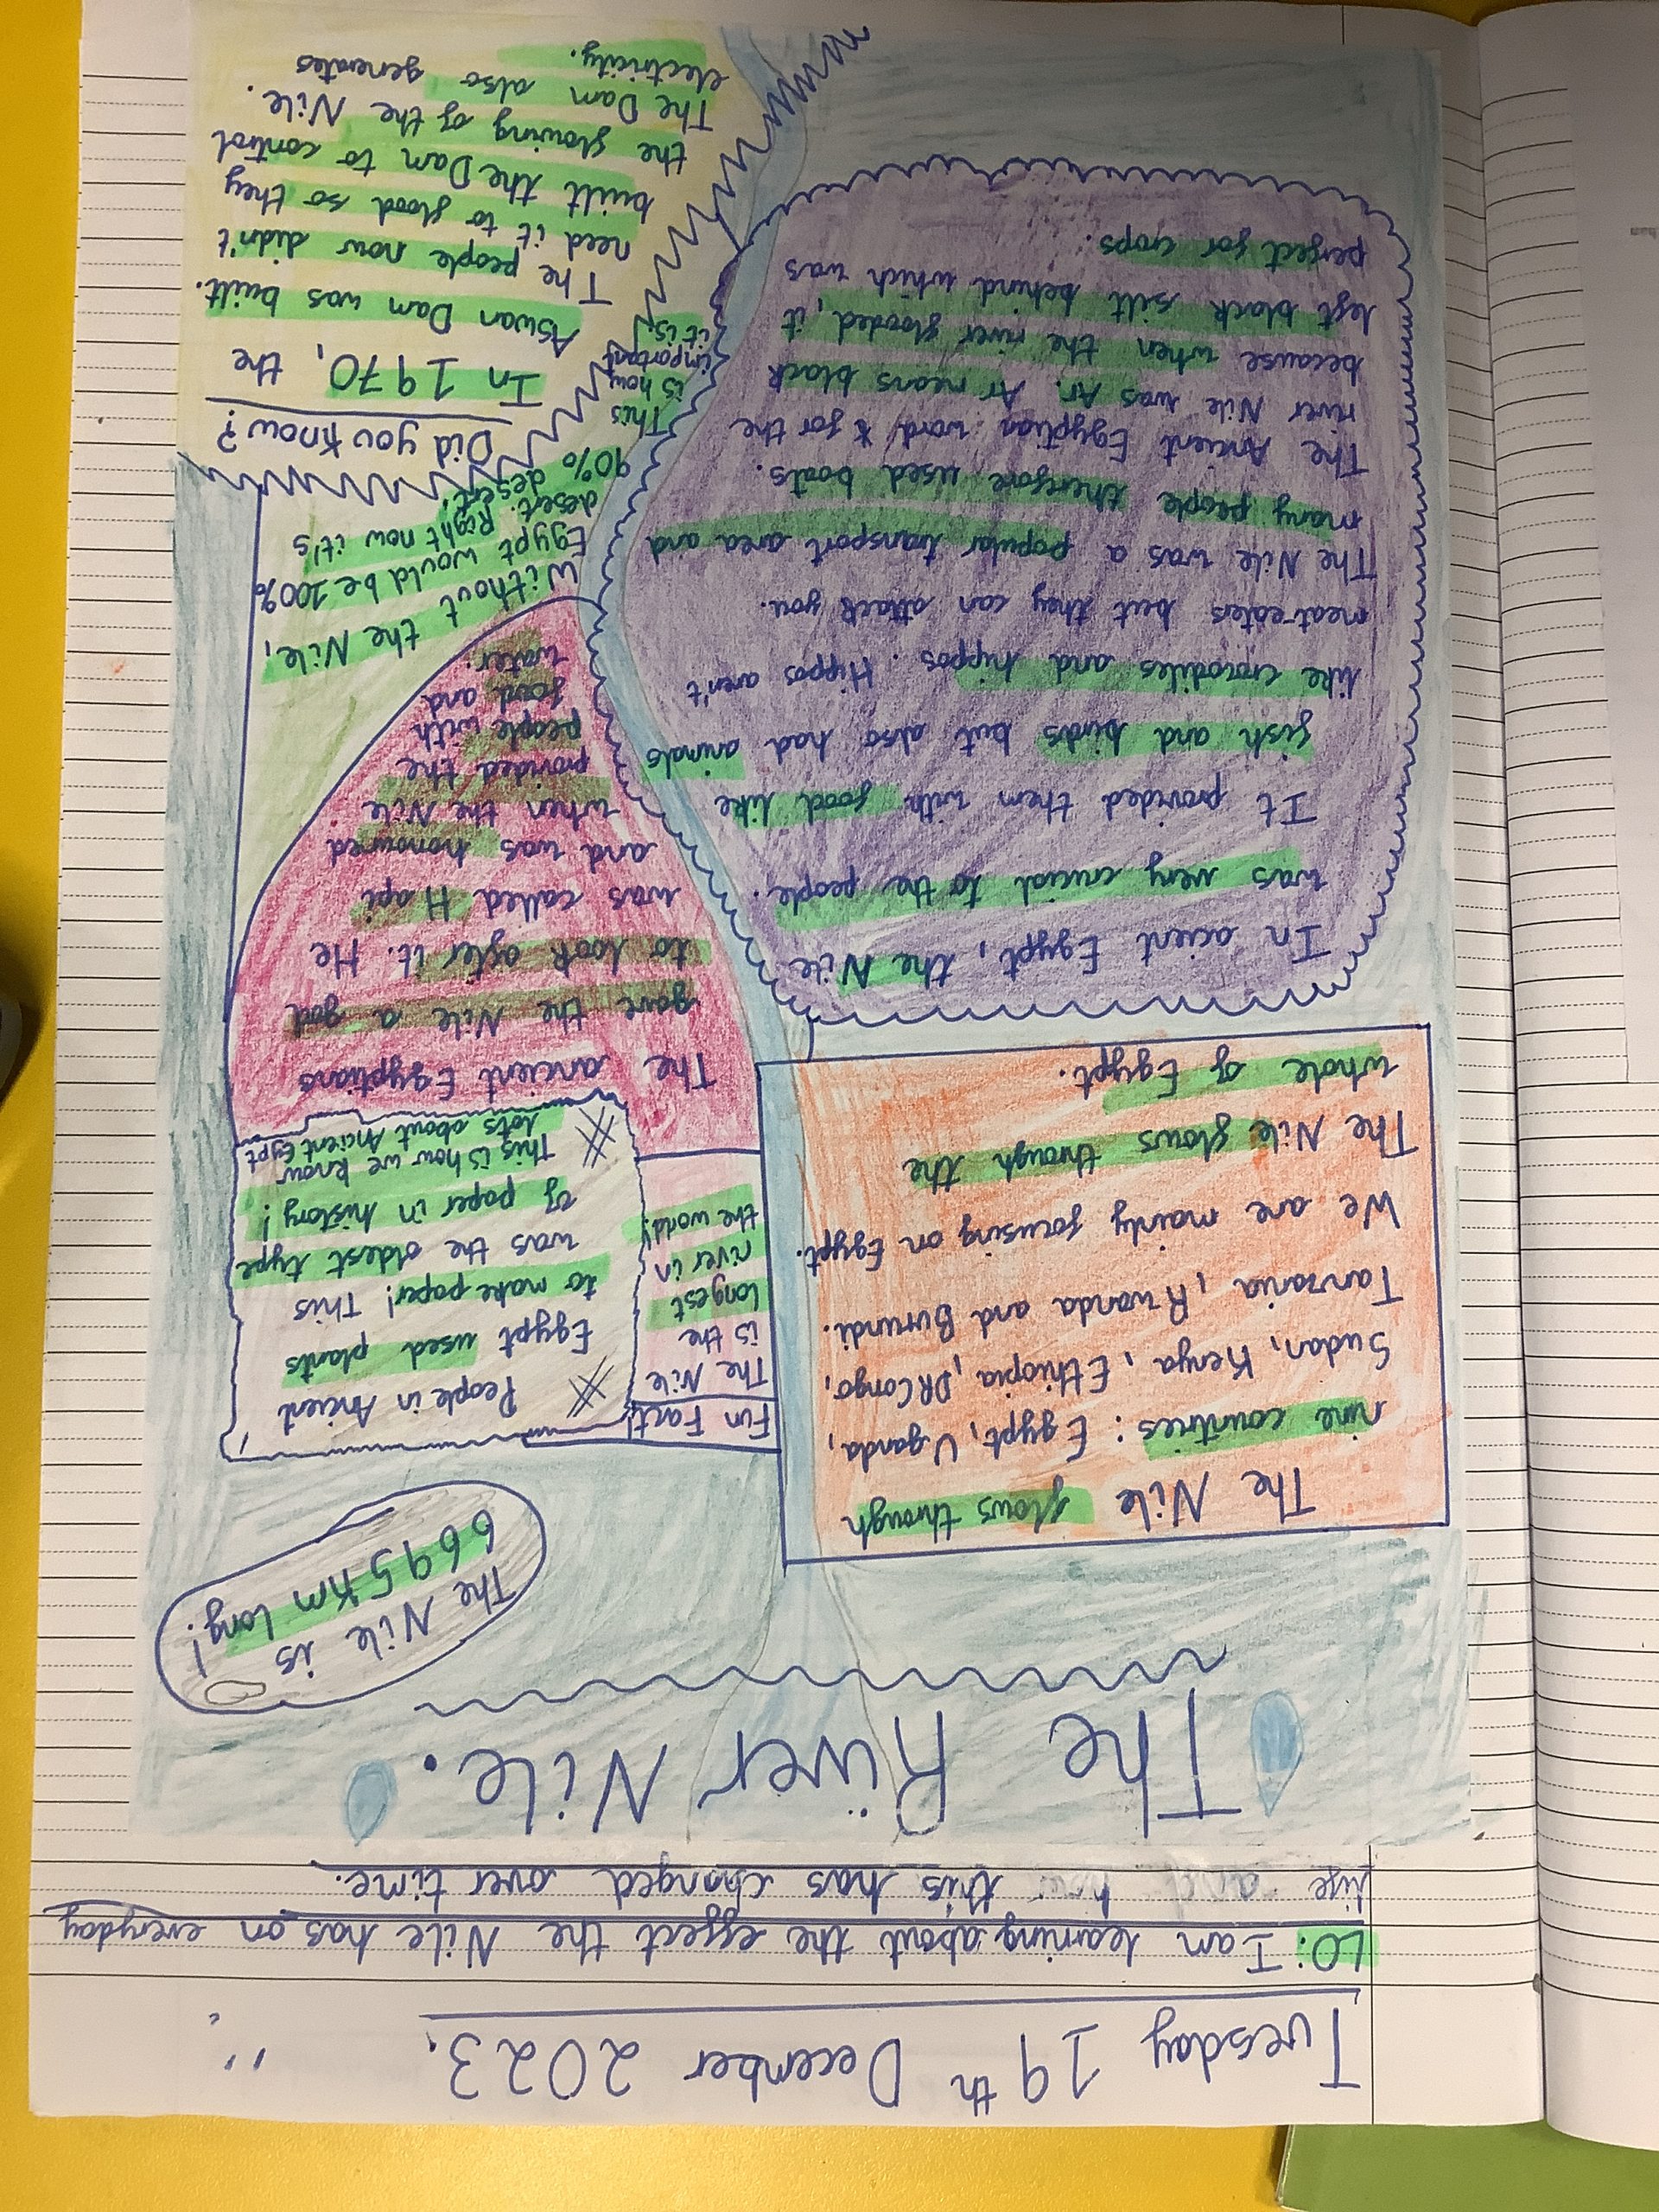 Tuesday 19th December 2023.
LO: I am learning about the effect the Nile has on everyday
life and how this has changed over time.
The River Nile.
The Nile is
6695 Km long!
The Nile flows through
nine countries: Egypt, Uganda,
Sudan, Kenya, Ethiopia, DR Congo,
Tanzania, Rwanda and Burundi.
We are mainly focusing on Egypt.
The Nile flows through the
whole of Egypt.
Fun Fact!
The Nile
is the
longest
river in
the world!
People in Ancient
Egypt used plants
to make paper! This
was the oldest type
of paper in history!
This is how we know
lots about Ancient Egypt
In acient Egypt, the Nile
was very crucial to the people.
It provided them with food like
fish and birds but also had animals
like crocodiles and hippos. Hippos aren't
meat-eaters but they can attack you.
The Nile was a popular transport area and
many people therefore used boats.
The Ancient Egyptian word for the
river Nile was Ar. Ar means black
because when the river flooded, it
left black silt behind which was
perfect for crops.
The ancient Egyptians
gave the Nile a god
to look after it. He
was called Hapi
and was honoured
when the Nile
provided the
people with
food and
water.
Without the Nile,
Egypt would be 100%
desert. Right now it's
90% desert!
This
is how
important
it is!
Did you know?
In 1970, the
Aswan Dam was built.
The people now didn't
need it to flood so they
built the Dam to control
the flowing of the Nile.
The Dam also generates
electricity.